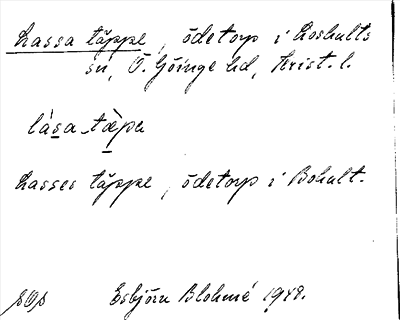 Lassa täppe, ödetorp i Loshults
sn, Ö. Göinge hd, Krist. l.
lása-tæpa
Lasses täppe, ödetorp i Bohult.
Esbjörn Blohmé 1948.